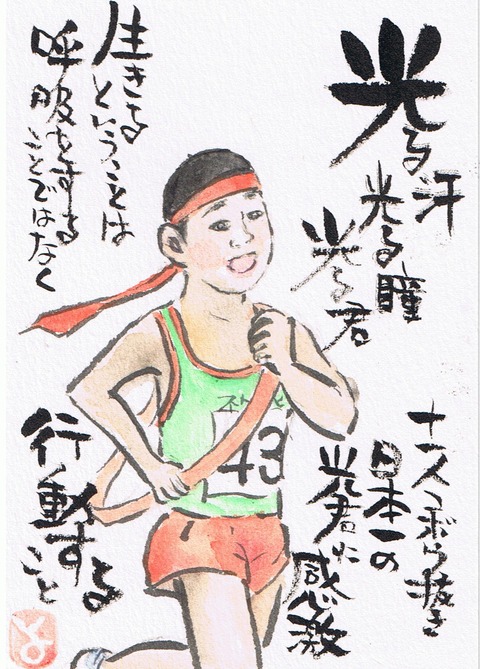 光る汗
光る瞳
光る君
十一人ごぼう抜き
日本一の
光君に
感激
43
生きる
ということは
呼吸をする
ことではなく
行動する
こと